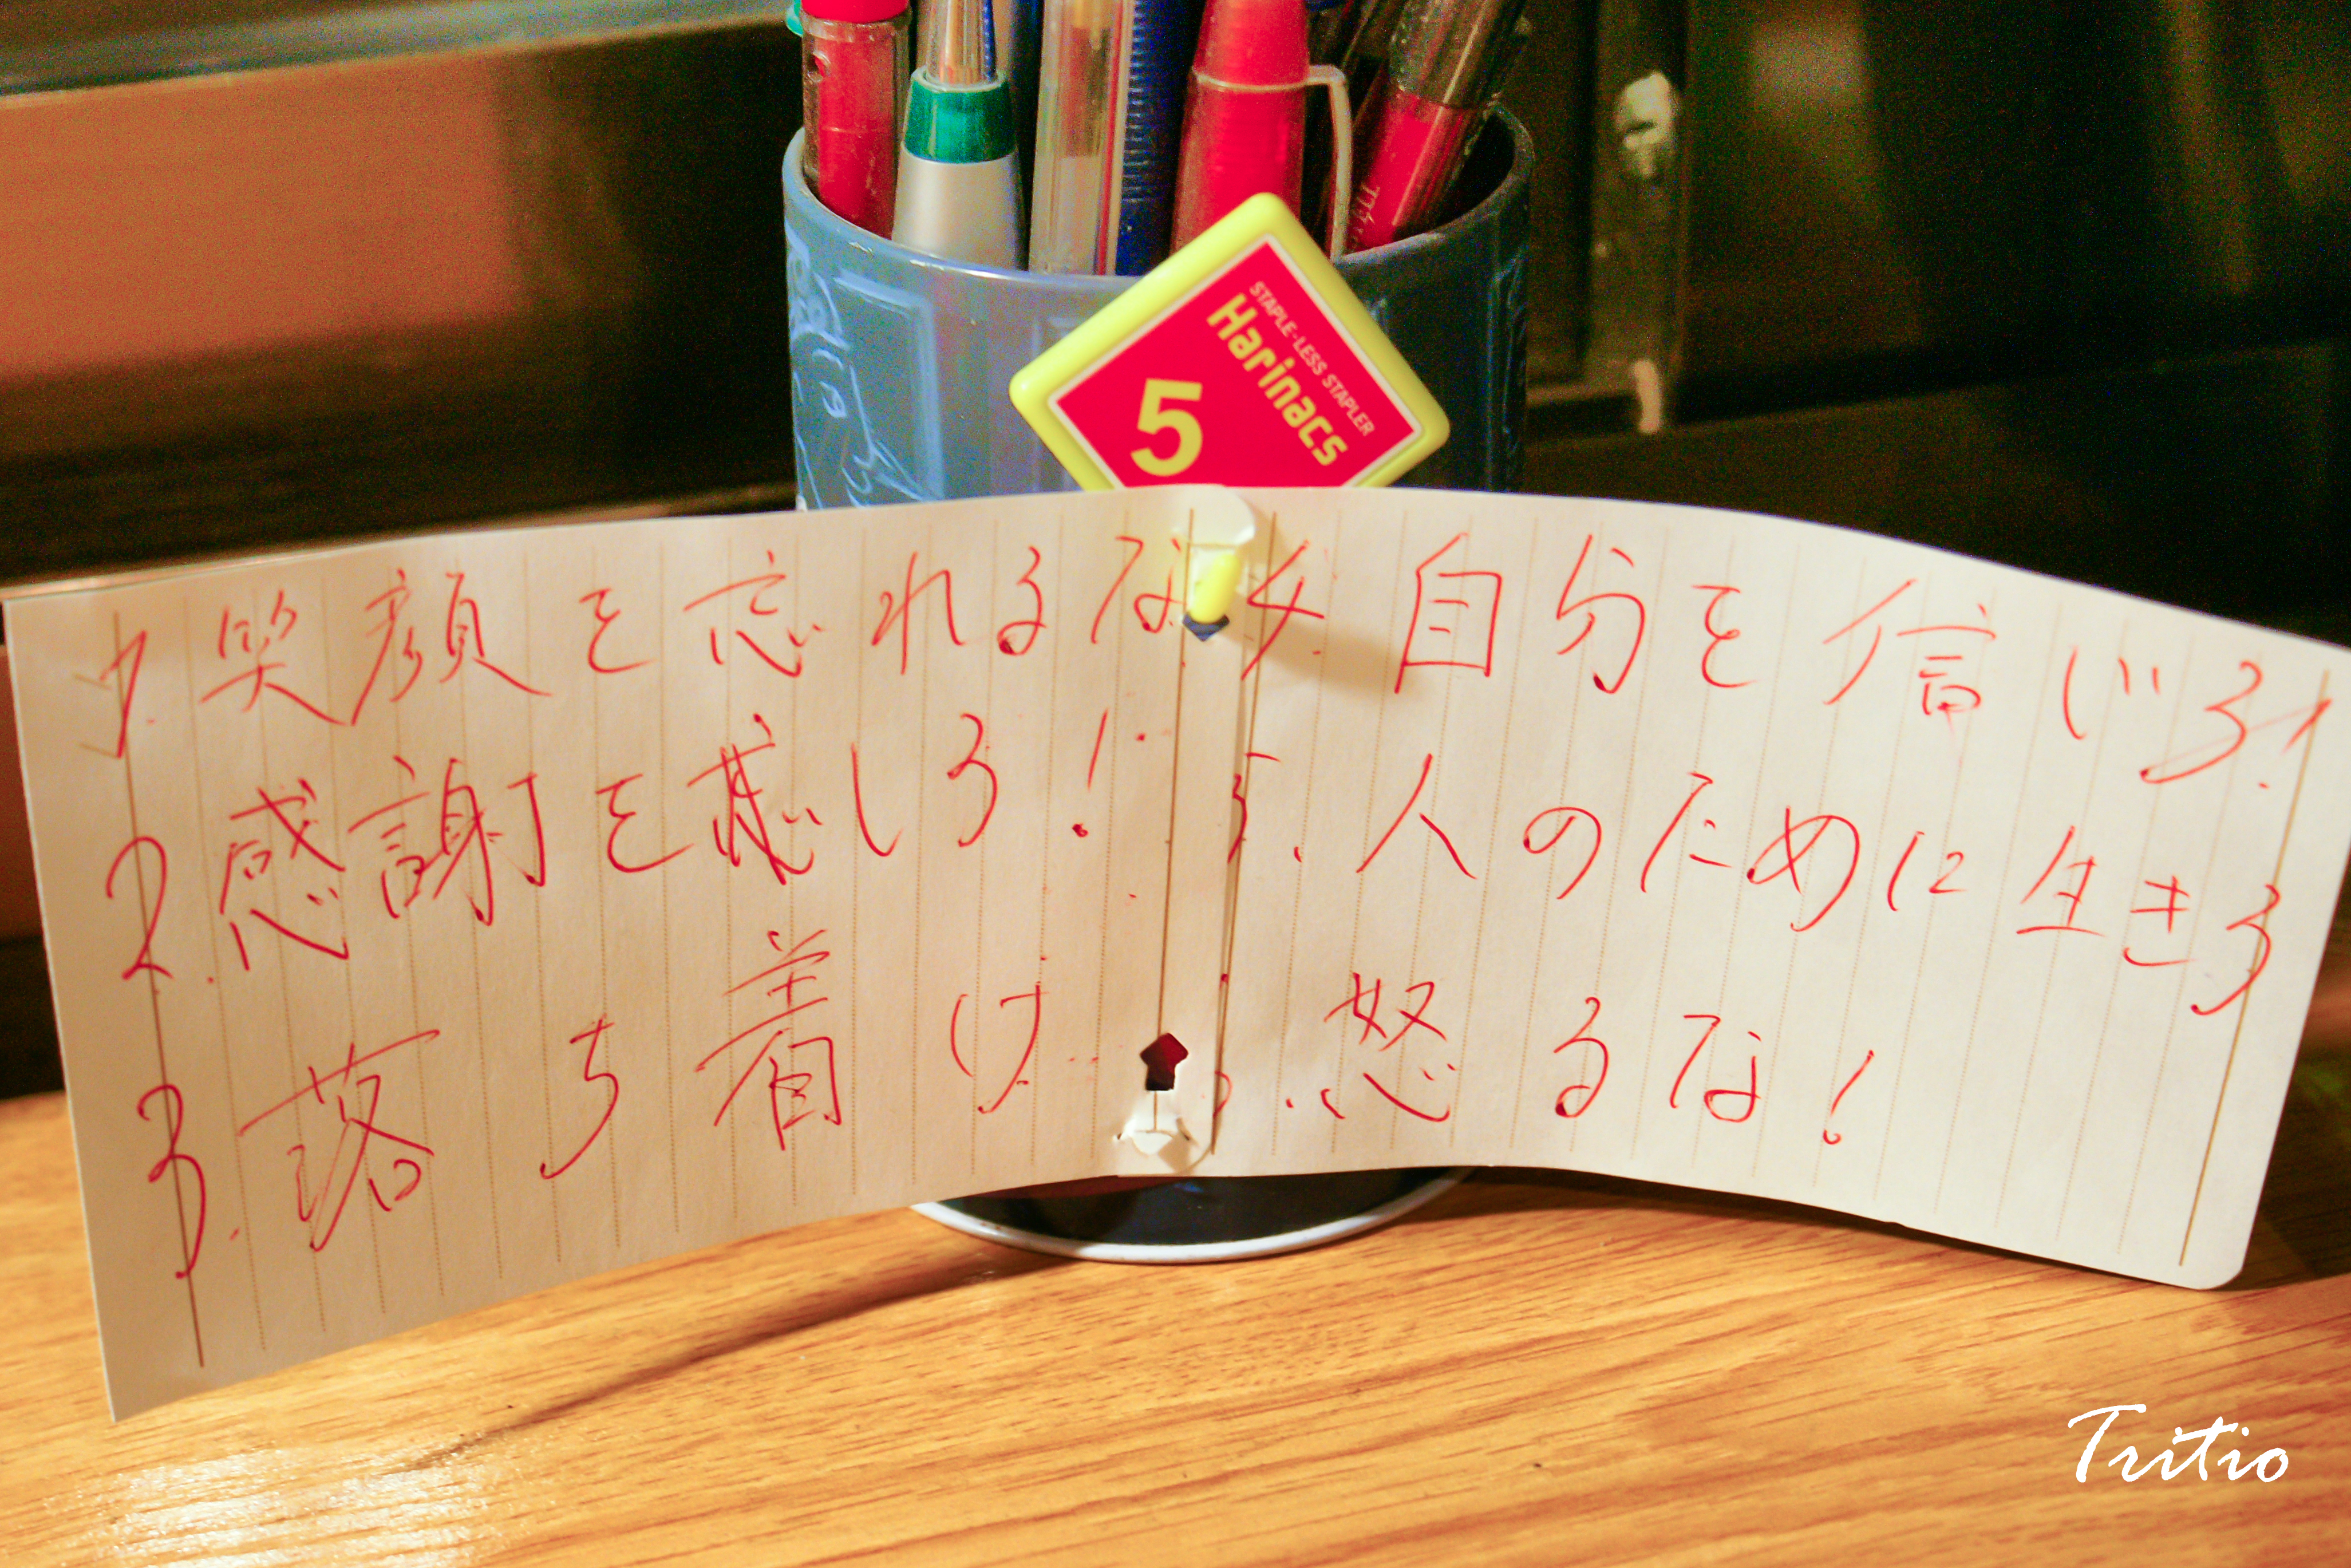 STAPLE-LESS STAPLER
Harinacs
5
1. 笑顔を忘れるな
2. 感謝を感じろ！
3. 落ち着け
4. 自分を信じろ！
5. 人のために生きろ
怒るな！
Tritio